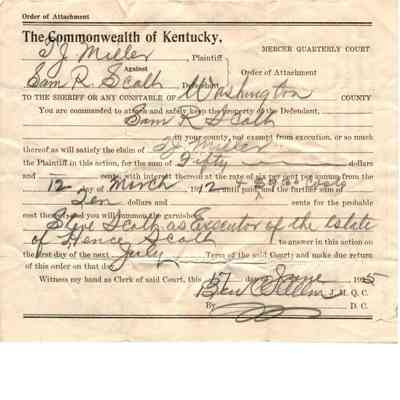 Order of Attachment
The Commonwealth of Kentucky,
MERCER QUARTERLY COURT
T J Miller, Plaintiff
Against
Order of Attachment
Sam R. Scalth Defendant
TO THE SHERIFF OR ANY CONSTABLE OF Washington COUNTY
You are commanded to attach and safely keep the property of the Defendant,
Sam R Scalth
in your county, not exempt from execution, or so much
thereof as will satisfy the claim of T J Miller
the Plaintiff in this action, for the sum of Fifty dollars
and cents, with interest thereon at the rate of six per cent per annum from the
12 day of March 1912 until paid, and the further sum of
Ten dollars and cents for the probable
cost thereof and you will summon the garnishee
Scalth as Executor of the Estate
of Scalth to answer in this action on
the first day of the next July Term of the said Court; and make due return
of this order on that day.
Witness my hand as Clerk of said Court, this 17 day June 1915
Ben J. M. Q. C.
By D. C.